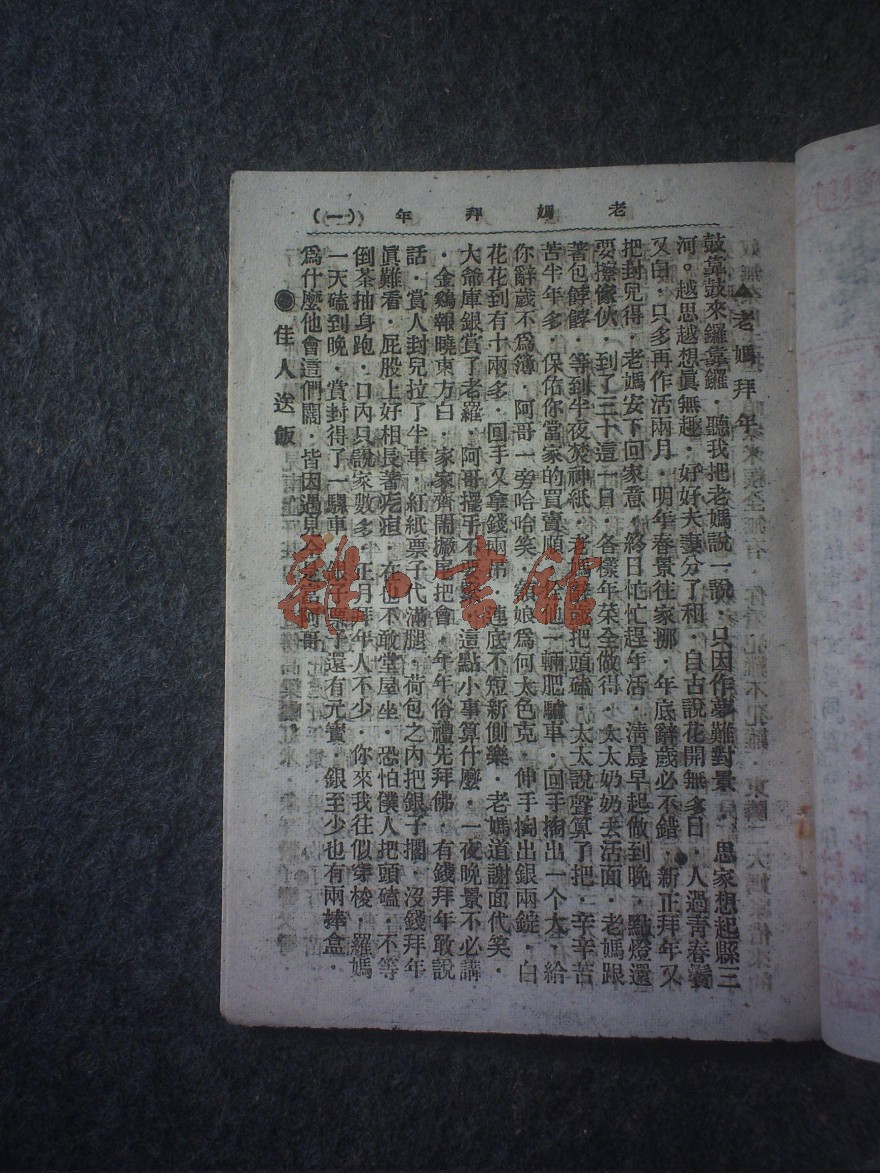 老媽拜年 (一)
▲老媽拜年
鼓靠鼓來鑼靠鑼．聽我把老媽說一說．只因作夢難對景．思家想起縣三
河。越思越想眞無趣．好好夫妻分了和．自古說花開無多日．人過靑春
又白．只多再作活兩月．明年春景往家挪．年底辭歲必不錯．新正拜年又
把封兒得．老媽安下回家意．終日忙忙趕年活．淸晨早起做到晚．點燈還
要擦傢伙．到了三十這一日．各樣年菜全做得．太太奶奶去活面．老媽跟
著包餑餑．等到半夜於神紙．把頭磕．太太說聲算了把．辛辛苦
苦半年多．保佑你當家的買賣順．他一輛肥驢車．回手掏出一个大．給
你辭歲不爲簿．阿哥一旁哈哈笑．娘爲何太色克．伸手掏出銀兩錠．白
花花到有十兩多．回手又拿錢兩吊．連底不短新側樂．老媽道謝面代笑．
大爺庫銀賞了老羅．阿哥擺手不．這點小事算什麼．一夜晚景不必講
．金鷄報曉東方白．家家齊開把會．年年俗禮先拜佛．有錢拜年敢說
話．賞人封兒拉了半車．紅紙票子代滿腿．荷包之內把銀子擱．沒錢拜年
眞難看．屁股上好相長著疙疸．在也不敢堂屋坐．恐怕僕人把頭磕．不等
倒茶抽身跑．口內只說家數多．正月拜年人不少．你來我往似穿梭．羅媽
一天磕到晚．賞封得了一騾車．子票子還有元寶．銀至少也有兩棒盒．
爲什麼他會這們闊．皆因遇見阿哥
●佳人送飯
雜·書館